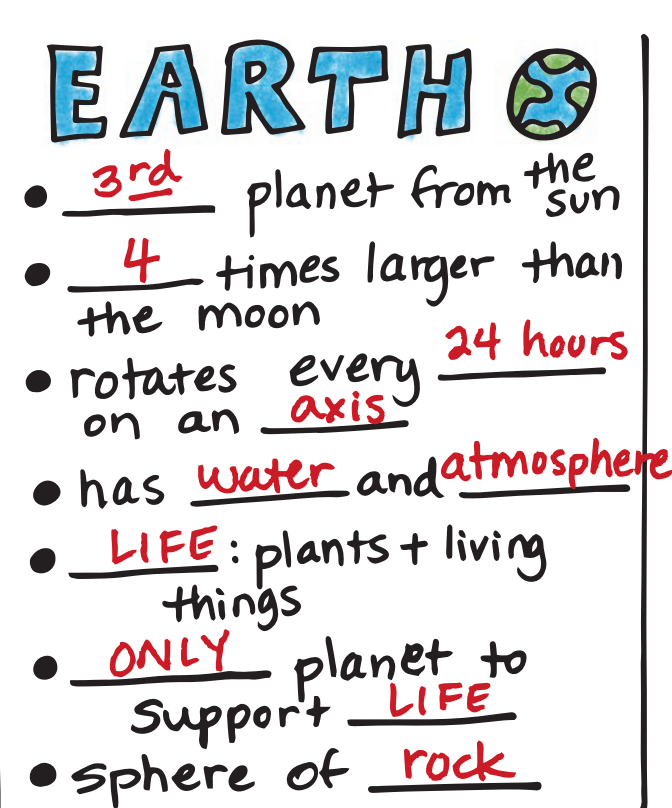 EARTH
• 3rd planet from the sun
• 4 times larger than
the moon
• rotates every 24 hours
on an axis
• has water and atmosphere
• LIFE: plants + living
things
• ONLY planet to
support LIFE
• sphere of rock